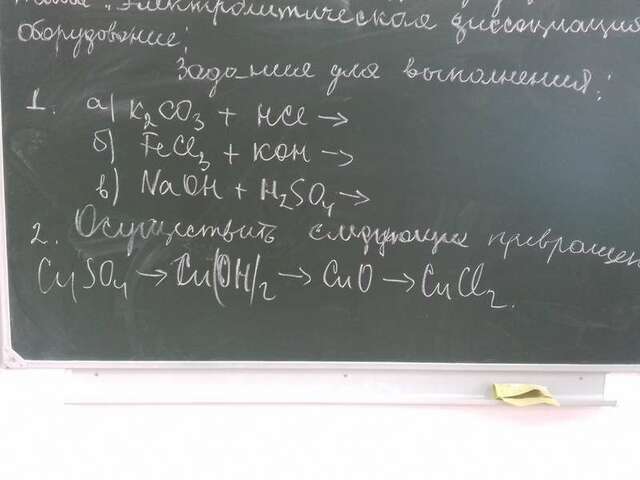 "Электролитическая диссоциация
Оборудование:
Задание для выполнения:
1. а) K₂CO₃ + HCl →
б) FeCl₃ + KOH →
в) NaOH + H₂SO₄ →
2. Осуществить следующие превращен
CuSO₄ → Cu(OH)₂ → CuO → CuCl₂.